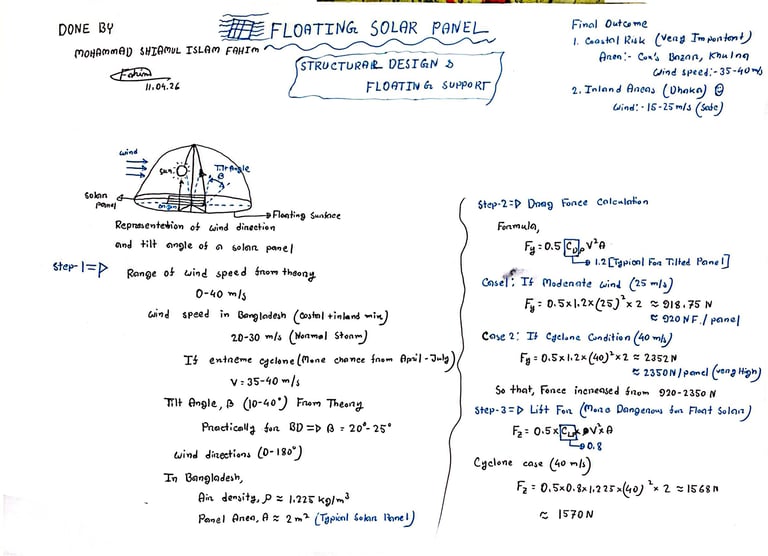 DONE BY
MOHAMMAD SHIAMUL ISLAM FAHIM
Fahim
11.04.26
FLOATING SOLAR PANEL
STRUCTURAL DESIGN &
FLOATING SUPPORT
Final Outcome
1. Coastal Risk (Very Important)
Area:- Cox's Bazar, Khulna
Wind speed:- 35-40 m/s
2. Inland Areas (Dhaka)
Wind:- 15-25 m/s (Safe)
Wind
Sun
Tilt Angle
β
Solar
Panel
Origin
Floating Surface
Representation of wind direction
and tilt angle of a solar panel
Step-1 =>
Range of wind speed from theory
0-40 m/s
Wind speed in Bangladesh (Costal + inland mix)
20-30 m/s (Normal Storm)
If extreme cyclone (More chance from April-July)
V = 35-40 m/s
Tilt Angle, β (10-40°) From Theory
Practically for BD => β = 20°-25°
Wind directions (0-180°)
In Bangladesh,
Air density, ρ ≈ 1.225 kg/m³
Panel Area, A ≈ 2 m² (Typical Solar Panel)
Step-2 => Drag Force Calculation
Formula,
Fy = 0.5 CD ρ V² A
1.2 [Typical For Tilted Panel]
Case 1: If Moderate Wind (25 m/s)
Fy = 0.5 x 1.2 x (25)² x 2 ≈ 918.75 N
≈ 920 N F. / panel
Case 2: If Cyclone Condition (40 m/s)
Fy = 0.5 x 1.2 x (40)² x 2 ≈ 2352 N
≈ 2350 N/panel (very High)
So that, Force increased from 920-2350 N
Step-3 => Lift For (More Dangerous for Float Solar)
Fz = 0.5 x CL x ρ V² x A
0.8
Cyclone case (40 m/s)
Fz = 0.5 x 0.8 x 1.225 x (40)² x 2 ≈ 1568 N
≈ 1570 N